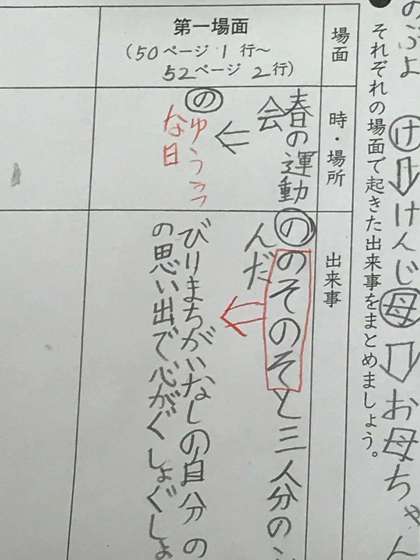 のぶよ け⇩けんじ母⇩お母ちゃん
それぞれの場面で起きた出来事をまとめましょう。
場面
時・場所
出来事
第一場面
(50ページ1行～
52ページ2行)
春の運動
会
の
ゆううつ
な日
ののそのそと三人分の
んだ
びりまちがいなしの自分の
の思い出で心がぐしょぐしょ